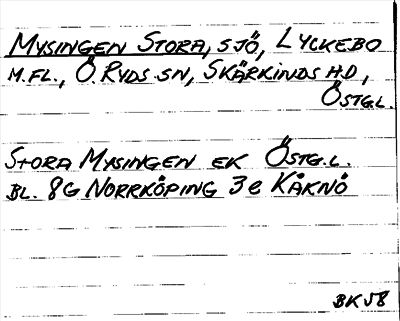 MYSINGEN STORA, SJÖ, LYCKEBO
M.FL., Ö. RYDS SN, SKÄRKINDS HD,
ÖSTG.L.
STORA MYSINGEN EK ÖSTG.L.
BL. 8G NORRKÖPING 3e KÅKNÖ
BK58